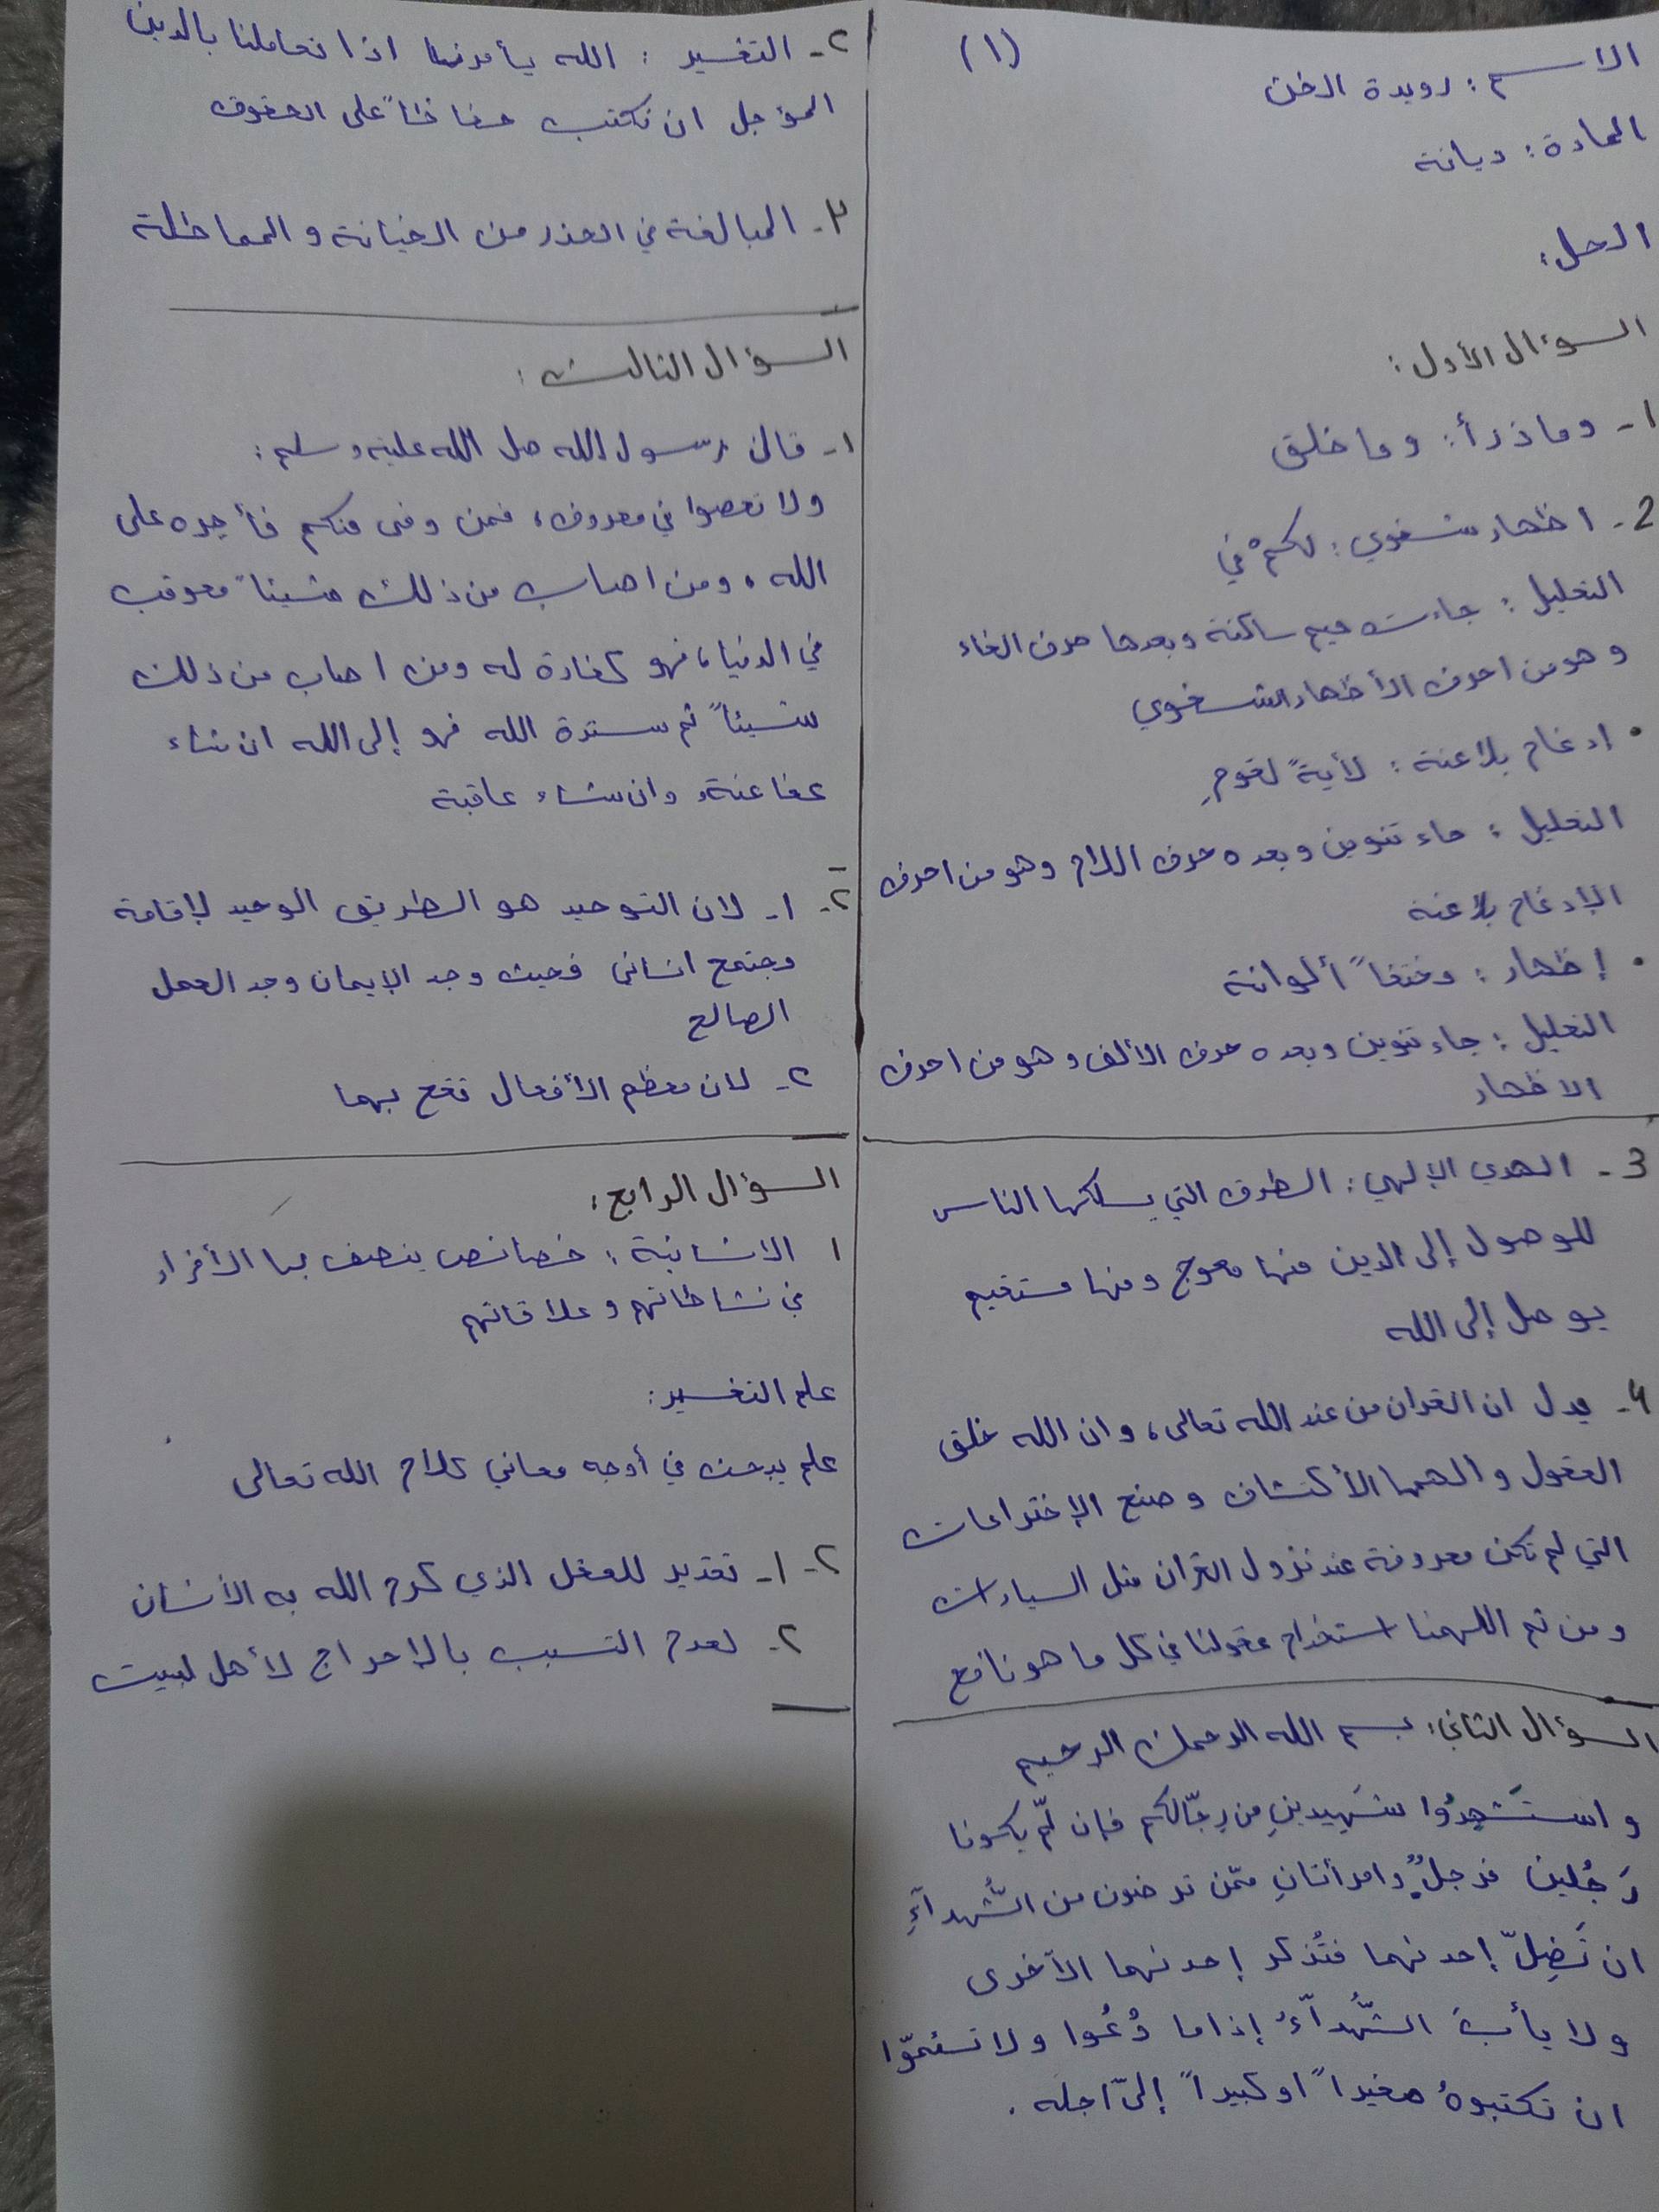 (١)
الاسم: رويدة الخن
المادة: ديانة
الحل:
السؤال الأول:
١- وما ذرأ: وما خلق
2- اظهار شفوي: لكمْ في
التعليل: جاءت ميم ساكنة وبعدها حرف الفاء
وهو من احرف الأظهار الشفوي
• إدغام بلا غنة: لأيةً لقومٍ
التعليل: جاء تنوين وبعده حرف اللام وهو من احرف
الإدغام بلا غنة
• إظهار: مختفاً ألوانة
التعليل: جاء تنوين وبعده حرف الألف وهو من احرف
الاظهار
3- الهدي الإلهي: الطرق التي يسلكها الناس
للوصول إلى الدين منها معوج ومنها مستقيم
يوصل إلى الله
٤- يدل ان القران من عند الله تعالى، وان الله خلق
العقول والهمها الأكتشاف وصنع الإختراعات
التي لم تكن معروفة عند نزول القران مثل السيارات
ومن ثم اللهمنا استخدام عقولنا في كل ما هو نافع
السؤال الثاني: بسم الله الرحمن الرحيم
واستَشهِدُوا شَهِيدينِ من رِجَالكم فإن لّم يكونا
رَجُلين فرجلٌ وامرأتانِ ممّن ترضون من الشُّهدآءِ
ان تَضِلّ إحدٮهما فتُذكر إحدٮهما الآخرى
ولا يأبَ الشُّهدآءُ إذا ما دُعُوا ولا تسئمّوا
ان تكتبوهُ صغيراً او كبيراً إلىّ اجلَه.
٢- التفسير: الله يأمرنا اذا تعاملنا بالدين
المؤجل ان نكتب حفاظاً على الحقوق
٣- المبالغة في الحذر من الخيانة والمماطلة
السؤال الثالث:
١- قال رسول الله صل الله عليه وسلم:
ولا تعصوا في معروف، فمن وفى منكم فأجره على
الله، ومن اصاب من ذلك شيئاً معوقب
في الدنيا، فهو كفارة له ومن اصاب من ذلك
شيئاً ثم سترة الله فهو إلى الله ان شاء
عفا عنة، وان شاء عاقبة
٢- ١- لان التوحيد هو الطريق الوحيد لإقامة
مجتمع انساني فحيث وجد الإيمان وجد العمل
الصالح
٢- لان معظم الأفعال تقع بهما
السؤال الرابع:
١ الانسانية: خصائص يتصف بها الأفراد
في نشاطاتهم وعلاقاتهم
علم التفسير:
علم يبحث في أوجه معاني كلام الله تعالى
٢- ١- تقدير للعقل الذي كرم الله به الأنسان
٢- لعدم التسبب بالإحراج لأهل لبيت